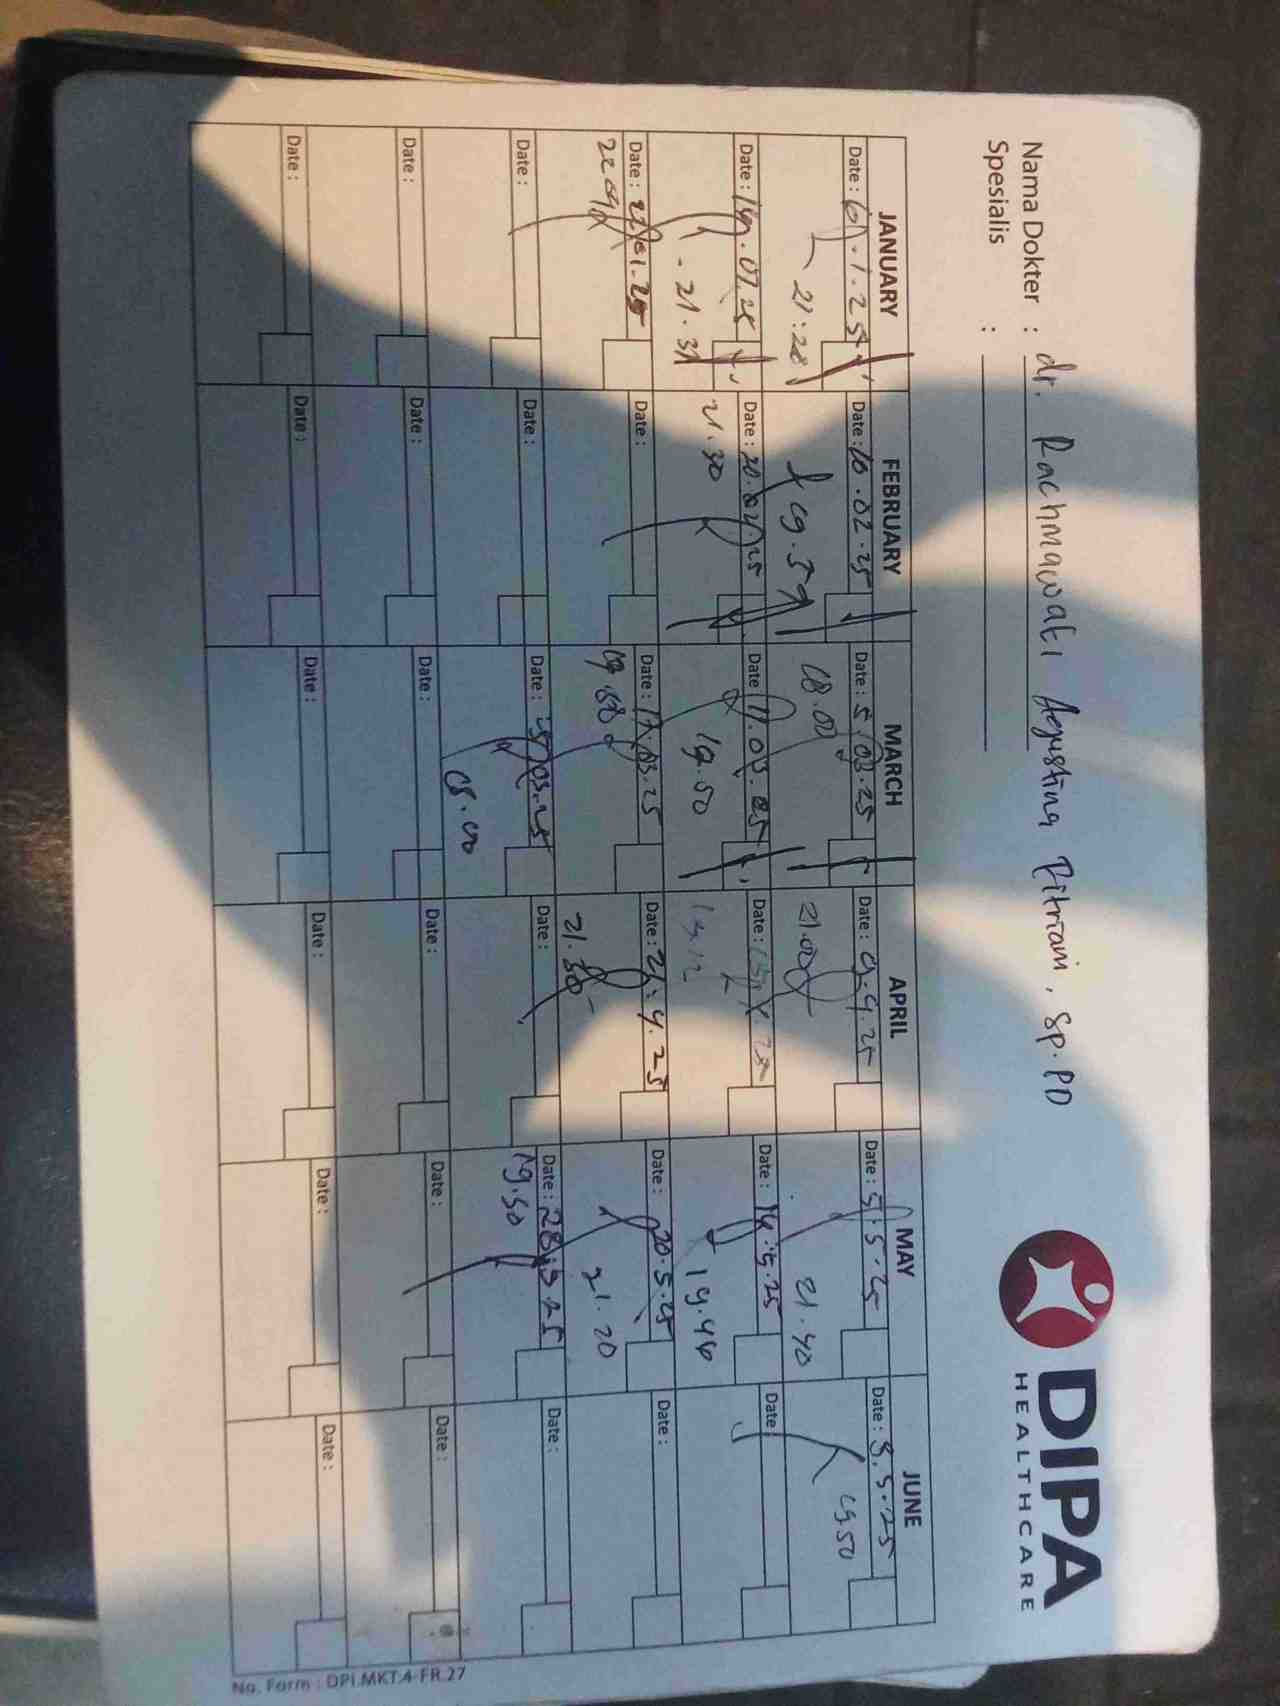 DIPA
HEALTHCARE
Nama Dokter : dr. Rachmawati Agustina Fitriani, Sp.PD
Spesialis :
JANUARY FEBRUARY MARCH APRIL MAY JUNE
Date : Date : 10.02.25 Date : 5.03.25 Date : 9.4.25 Date : 5.5.25 Date : 3.5.25
21:28 19.59 18.00 21.00 21.40 19.50
Date : Date : 20.02.25 Date : 11.03.25 Date : Date : 14.5.25 Date :
21.31 21.30 19.50 19.12 19.46
Date : 22.01.25 Date : Date : 17.03.25 Date : 21.4.25 Date : 20.5.25 Date :
19.50 21.30 21.20
Date : Date : Date : 25.03.25 Date : Date : 28.5.25 Date :
08.00 19.50
Date : Date : Date : Date : Date : Date :
Date : Date : Date : Date : Date : Date :
No. Form : DPI.MKT.4-FR.27